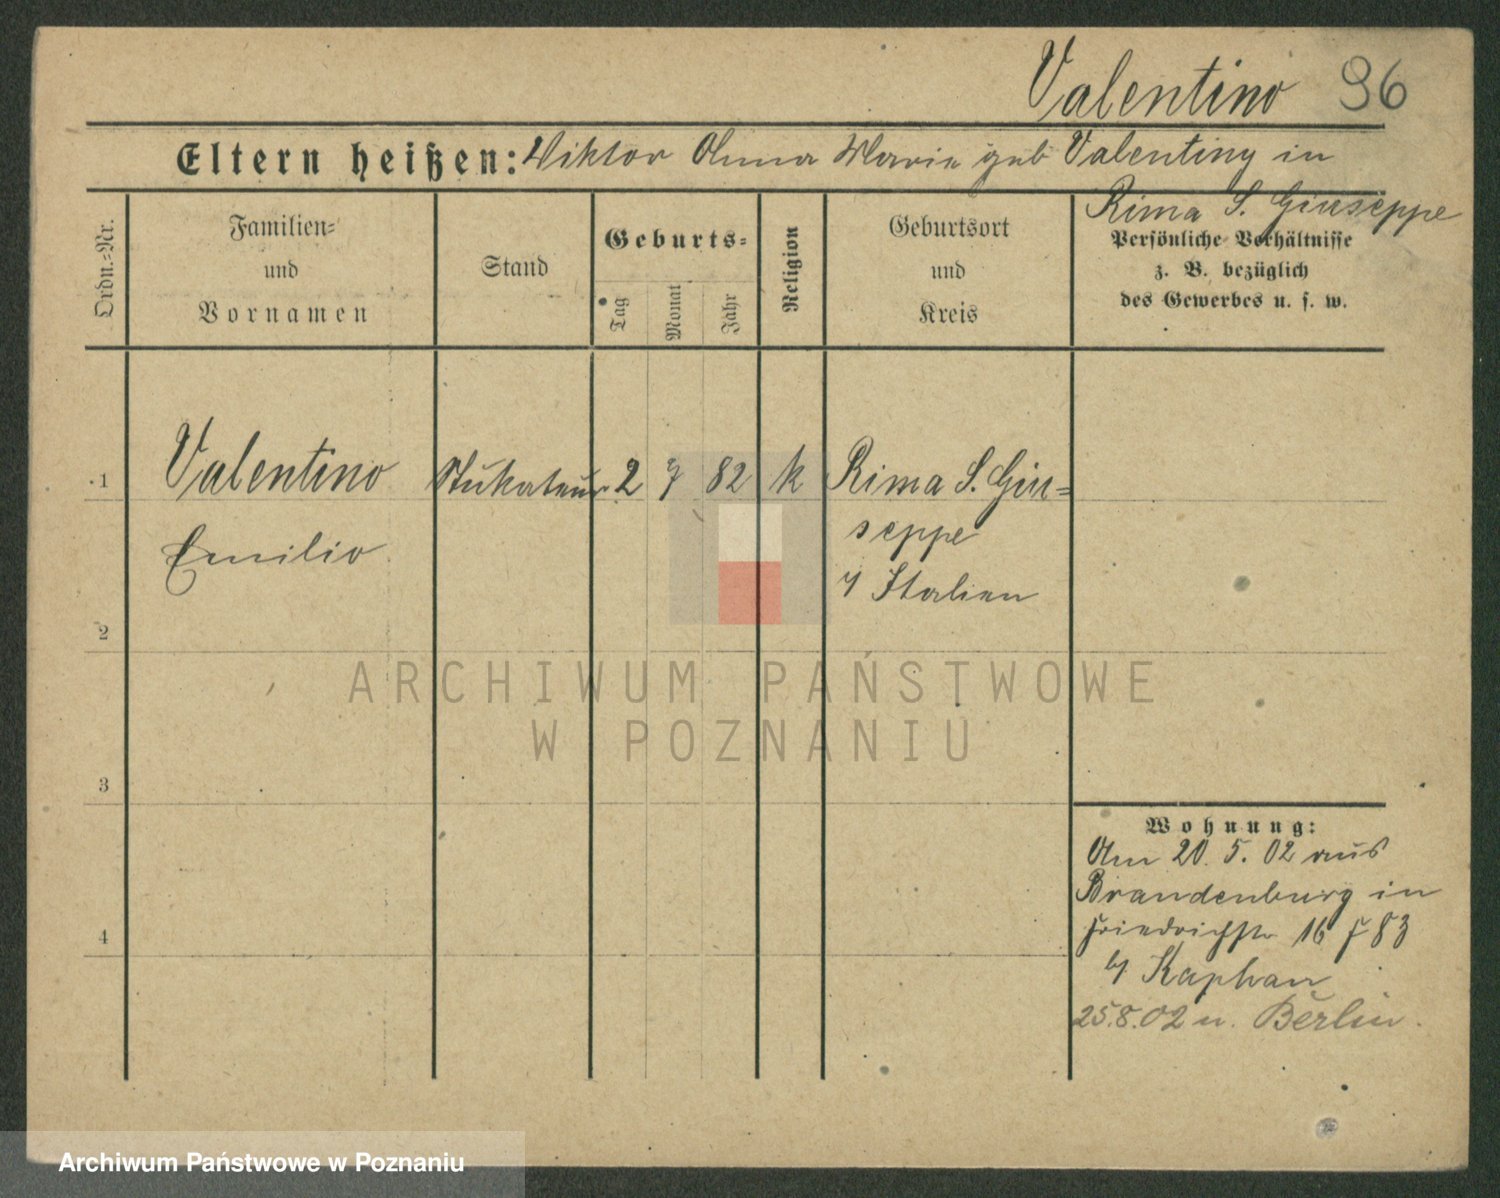 Valentino 96
Eltern heißen: Viktor Anna Maria geb Valentiny in
Rima S. Giuseppe
Ordn.-Nr.
Familien-
und
Vornamen
Stand
Geburts-
Tag
Monat
Jahr
Religion
Geburtsort
und
Kreis
Persönliche Verhältnisse
z. B. bezüglich
des Gewerbes u. s. w.
1 Valentino Stukateur 2 9 82 k Rima S. Giu=
seppe
Emilio
Italien
2
3
4
ARCHIWUM PAŃSTWOWE
W POZNANIU
Wohnung:
Am 20. 5. 02 aus
Brandenburg in
Friedrichstr 16
Kaphan
25.8.02 n. Berlin.
Archiwum Państwowe w Poznaniu